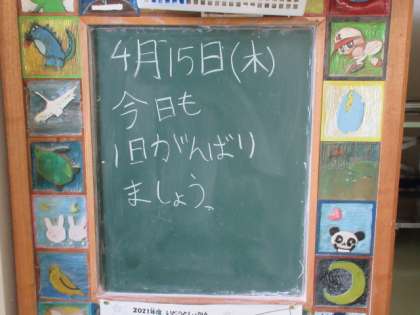 4月15日(木)
今日も
1日がんばり
ましょう。
2021年度